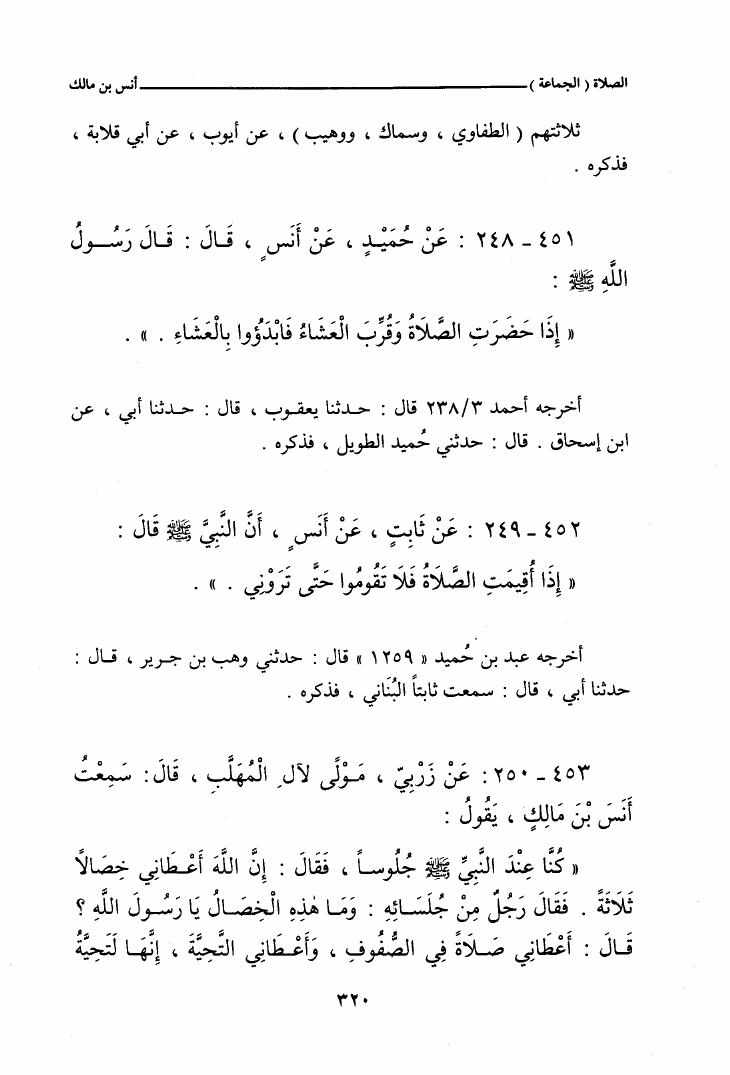 الصلاة ( الجماعة ) ــــــــــــــــــــــــــــــــــــــــ أنس بن مالك
ثلاثتهم ( الطفاوي ، وسماك ، ووهيب ) ، عن أيوب ، عن أبي قلابة ،
فذكره .
٤٥١ - ٢٤٨ : عَنْ حُمَيْدٍ ، عَنْ أَنَسٍ ، قَالَ : قَالَ رَسُولُ
اللَّهِ ﷺ :
« إِذَا حَضَرَتِ الصَّلَاةُ وَقُرِّبَ الْعَشَاءُ فَابْدَؤُوا بِالْعَشَاءِ . » .
أخرجه أحمد ٢٣٨/٣ قال : حدثنا يعقوب ، قال : حدثنا أبي ، عن
ابن إسحاق . قال : حدثني حُميد الطويل ، فذكره .
٤٥٢ - ٢٤٩ : عَنْ ثَابِتٍ ، عَنْ أَنَسٍ ، أَنَّ النَّبِيَّ ﷺ قَالَ :
« إِذَا أُقِيمَتِ الصَّلَاةُ فَلَا تَقُومُوا حَتَّى تَرَوْنِي . » .
أخرجه عبد بن حُميد « ١٢٥٩ » قال : حدثني وهب بن جرير ، قال :
حدثنا أبي ، قال : سمعت ثابتاً البُنَاني ، فذكره .
٤٥٣ - ٢٥٠ : عَنْ زَرْبِيّ ، مَوْلًى لآلِ الْمُهَلَّبِ ، قَالَ : سَمِعْتُ
أَنَسَ بْنَ مَالِكٍ ، يَقُولُ :
« كُنَّا عِنْدَ النَّبِيِّ ﷺ جُلُوساً ، فَقَالَ : إِنَّ اللَّهَ أَعْطَانِي خِصَالاً
ثَلَاثَةً . فَقَالَ رَجُلٌ مِنْ جُلَسَائِهِ : وَمَا هَذِهِ الْخِصَالُ يَا رَسُولَ اللَّهِ ؟
قَالَ : أَعْطَانِي صَلَاةً فِي الصُّفُوفِ ، وَأَعْطَانِي التَّحِيَّةَ ، إِنَّهَا لَتَحِيَّةُ
٣٢٠